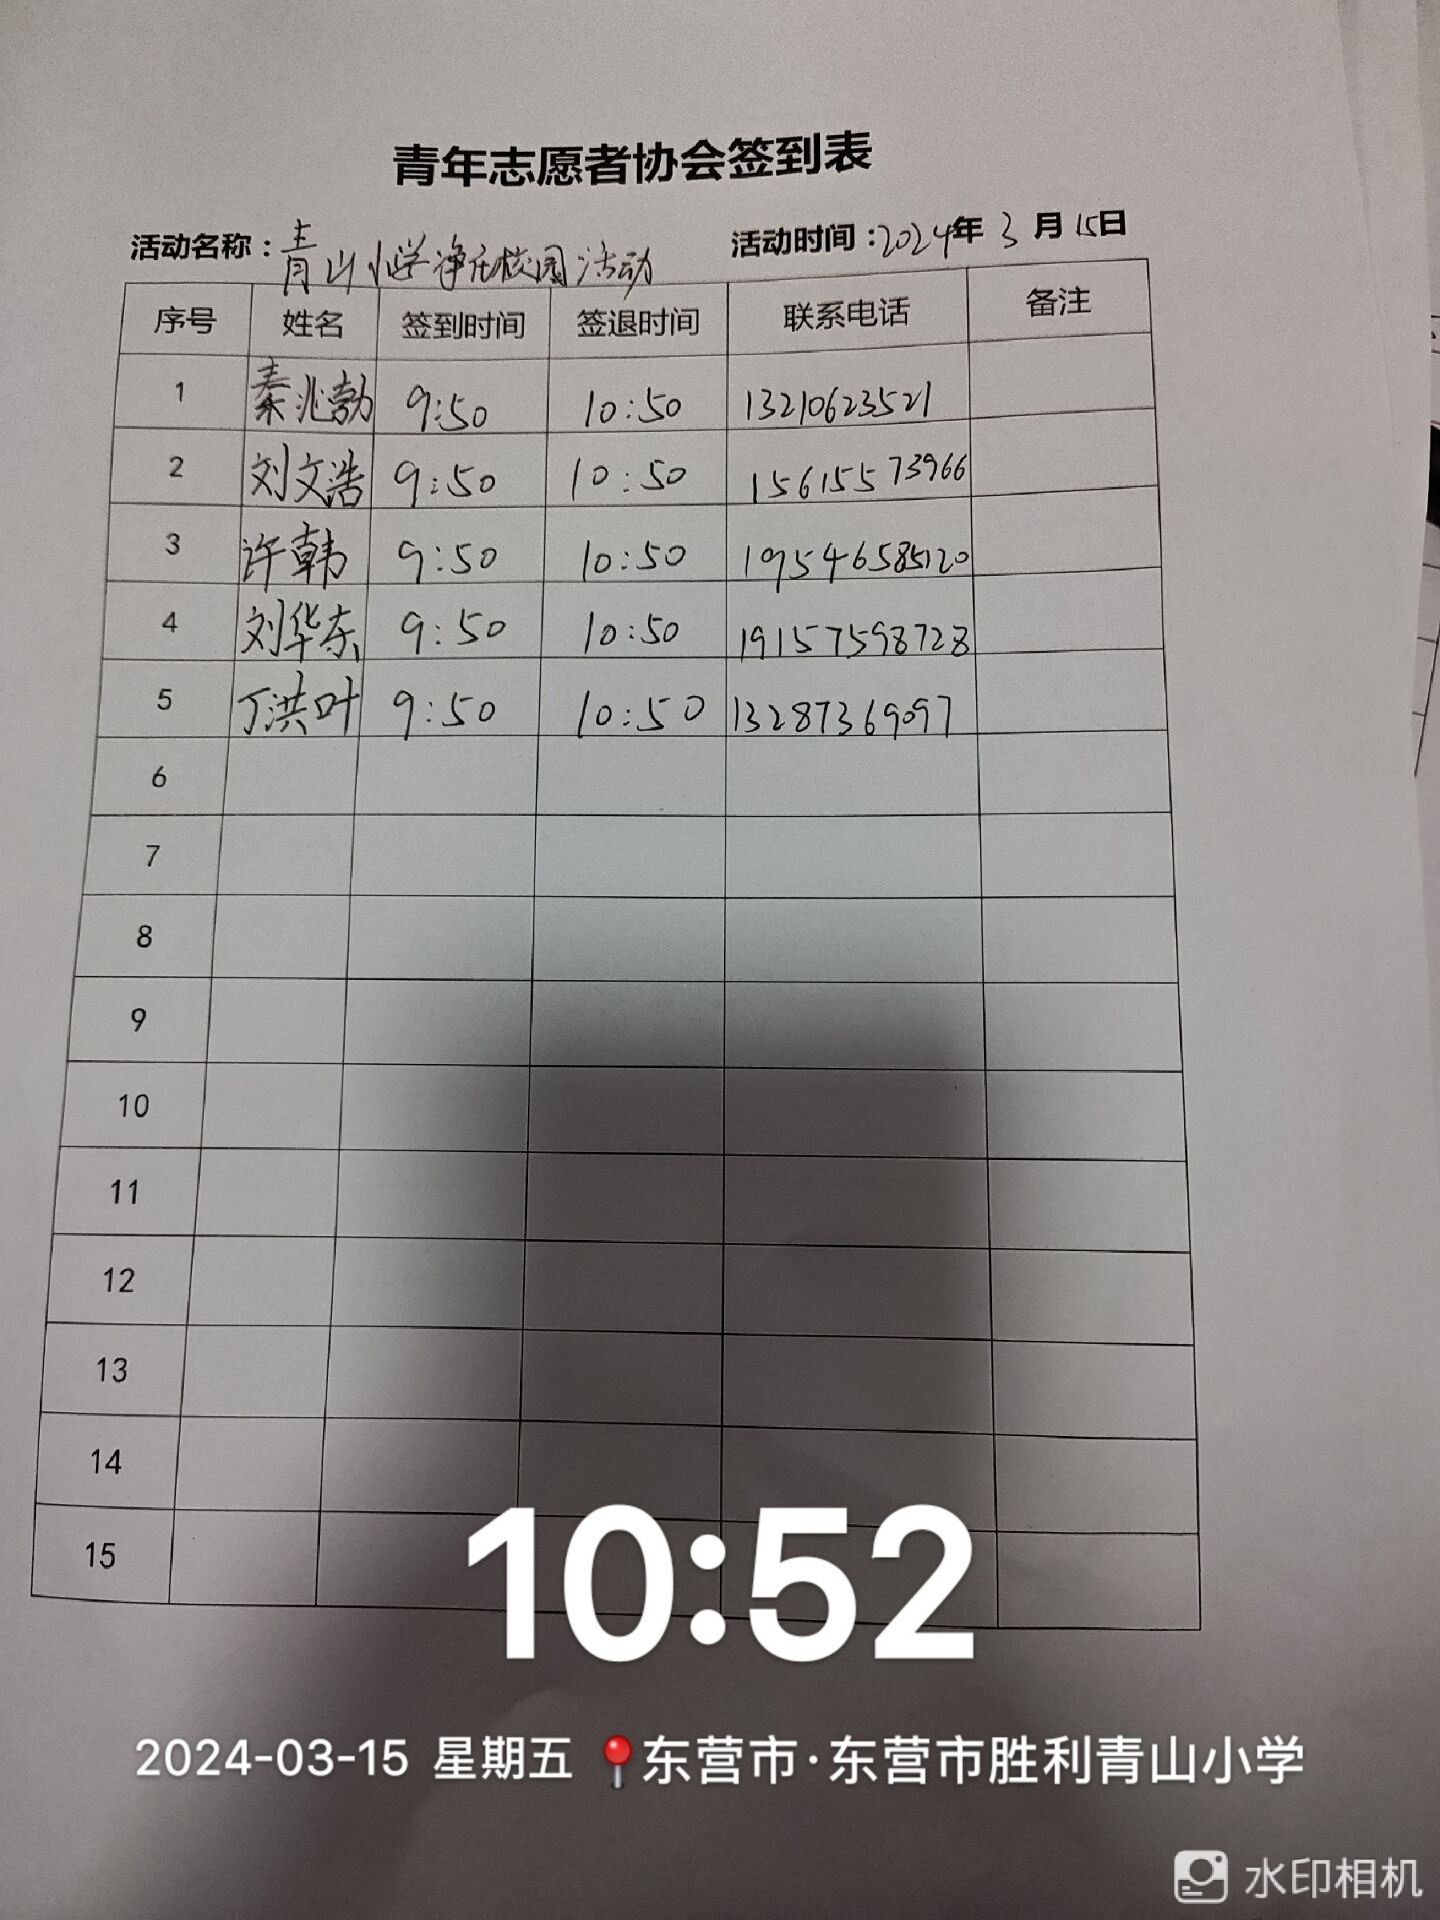 青年志愿者协会签到表
活动名称：青山小学净化校园活动 活动时间：2024年 3 月 15日
序号 姓名 签到时间 签退时间 联系电话 备注
1 秦兆勃 9:50 10:50 13210623521
2 刘文浩 9:50 10:50 15615573966
3 许韩 9:50 10:50 19546585120
4 刘华东 9:50 10:50 19157598728
5 丁洪叶 9:50 10:50 13287369097
6
7
8
9
10
11
12
13
14
15
10:52
2024-03-15 星期五 东营市·东营市胜利青山小学
水印相机